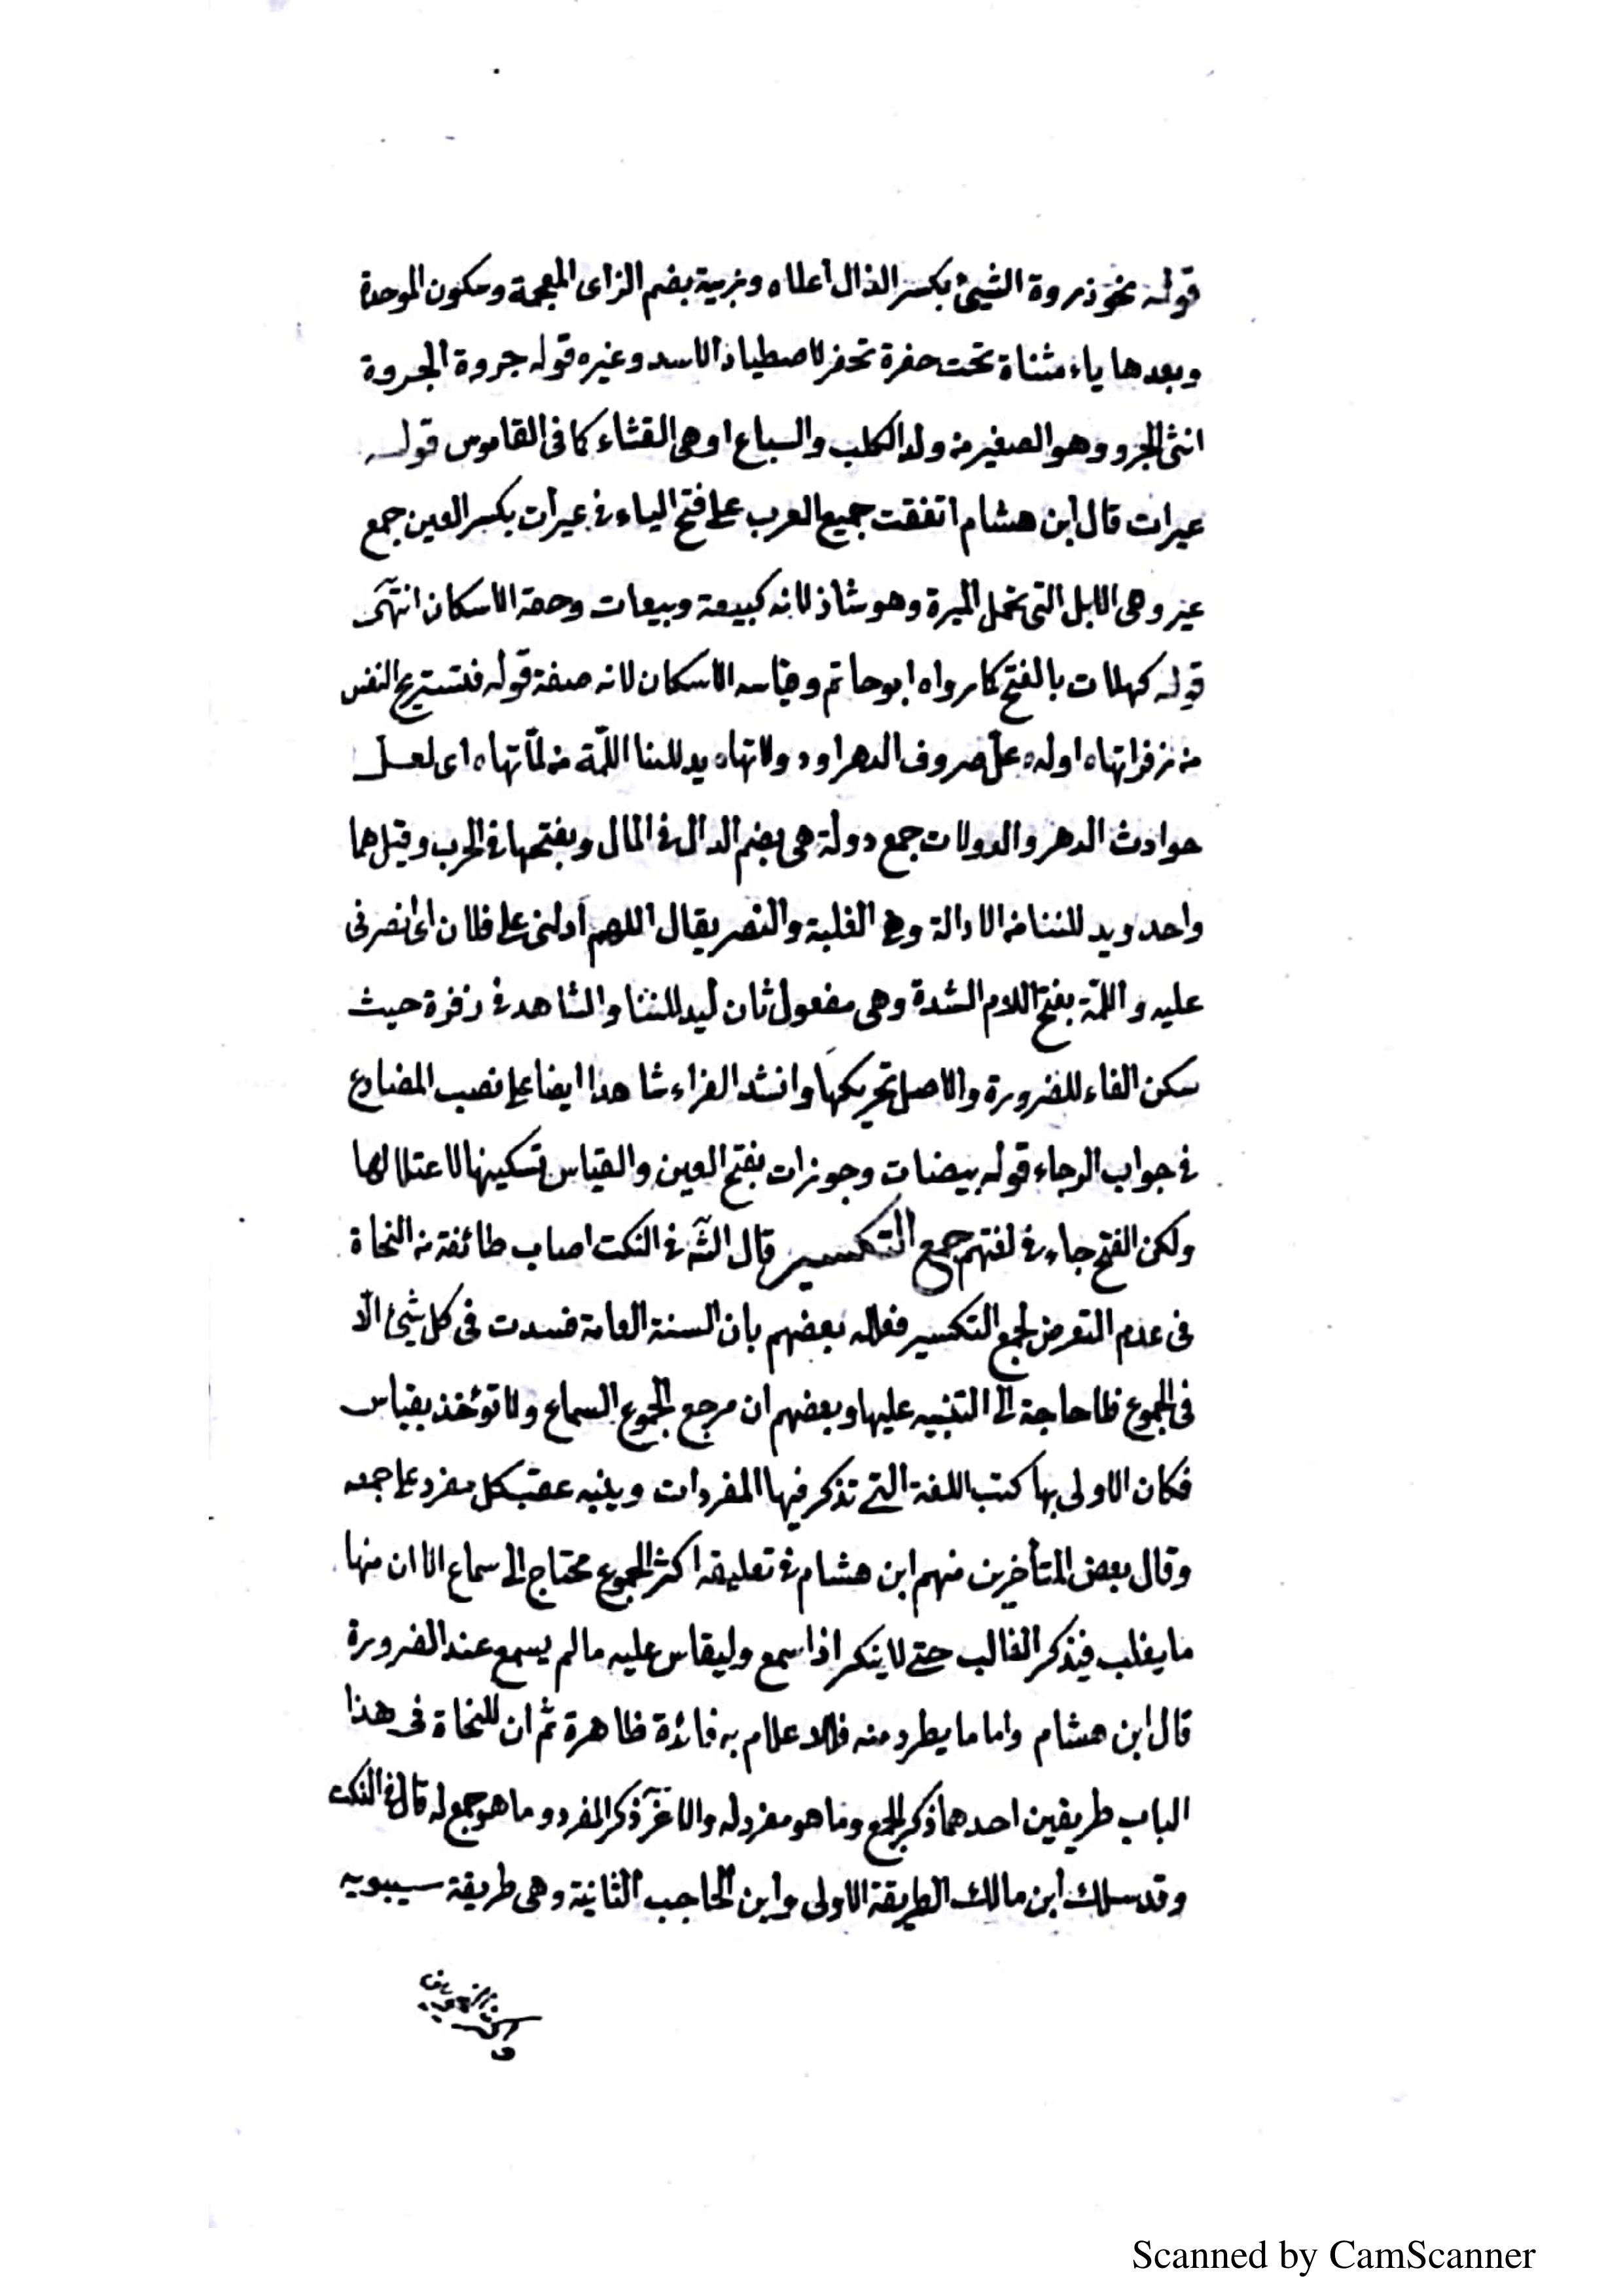 قوله نحو ذروة الشيئ بكسر الذال اعلاه وزبية بضم الزاى المعجمة وسكون الموحدة
وبعدها ياء مثناة تحت حفرة تحفر لاصطياد الاسد وغيره قوله جروة الجروة
انثى الجرو وهو الصغير من ولد الكلب والسباع او هى القثاء كما فى القاموس قوله
عيرات قال ابن هشام اتفقت جميع العرب على فتح الياء فى عيرات بكسر العين جمع
عير وهى الابل التى تحمل الميرة وهو شاذ لانه كبيعة وبيعات وحقه الاسكان انتهى
قوله كهلات بالفتح كما رواه ابو حاتم وقياسه الاسكان لانه صفة قوله فتستريح النفس
من زفراتها ه اوله ه عل صروف الدهر او دولاتها ه يدللننا اللمّة من لمّاتها ه اى لعل
حوادث الدهر والدولات جمع دولة هى بضم الدال فى المال وبفتحها فى الحرب وقيل هما
واحد ويدللننا من الادالة وهى الغلبة والنصر يقال اللهم أدلنى على فلان اى انصرنى
عليه واللمّة بفتح اللام الشدة وهى مفعول ثان ليدللننا والشاهد فى زفرة حيث
سكن الفاء للضرورة والاصل تحريكها وانشد الفراء شاهدا ايضا على نصب المضارع
فى جواب الرجاء قوله بيضات وجوزات بفتح العين والقياس تسكينها لاعتلالها
ولكن الفتح جاء فى لغتهم جمع التكسير قال الشّه فى النكت اصاب طائفة من النحاة
فى عدم التعرض لجمع التكسير فعلله بعضهم بان السنة العامة فسدت فى كل شيئ الّا
فى الجموع فلا حاجة الى التنبيه عليها وبعضهم ان مرجع الجموع السماع ولا تؤخذ بقياس
فكان الاولى بها كتب اللغة التى تذكر فيها المفردات وينبه عقب كل مفرد على جمعه
وقال بعض المتأخرين منهم ابن هشام فى تعليقه اكثر الجموع محتاج الى سماع الا ان منها
ما يغلب فيذكر الغالب حتى لا ينكر اذا سمع وليقاس عليه ما لم يسمع عند الضرورة
قال ابن هشام واما ما يطرد منه فللاعلام به فائدة ظاهرة ثم ان للنحاة فى هذا
الباب طريقين احدهما ذكر الجمع وما هو مفرد له والآخر ذكر المفرد وما هو جمع له قال فى النكت
وقد سلك ابن مالك الطريقة الاولى وابن الحاجب الثانية وهى طريقة سيبويه
Scanned by CamScanner